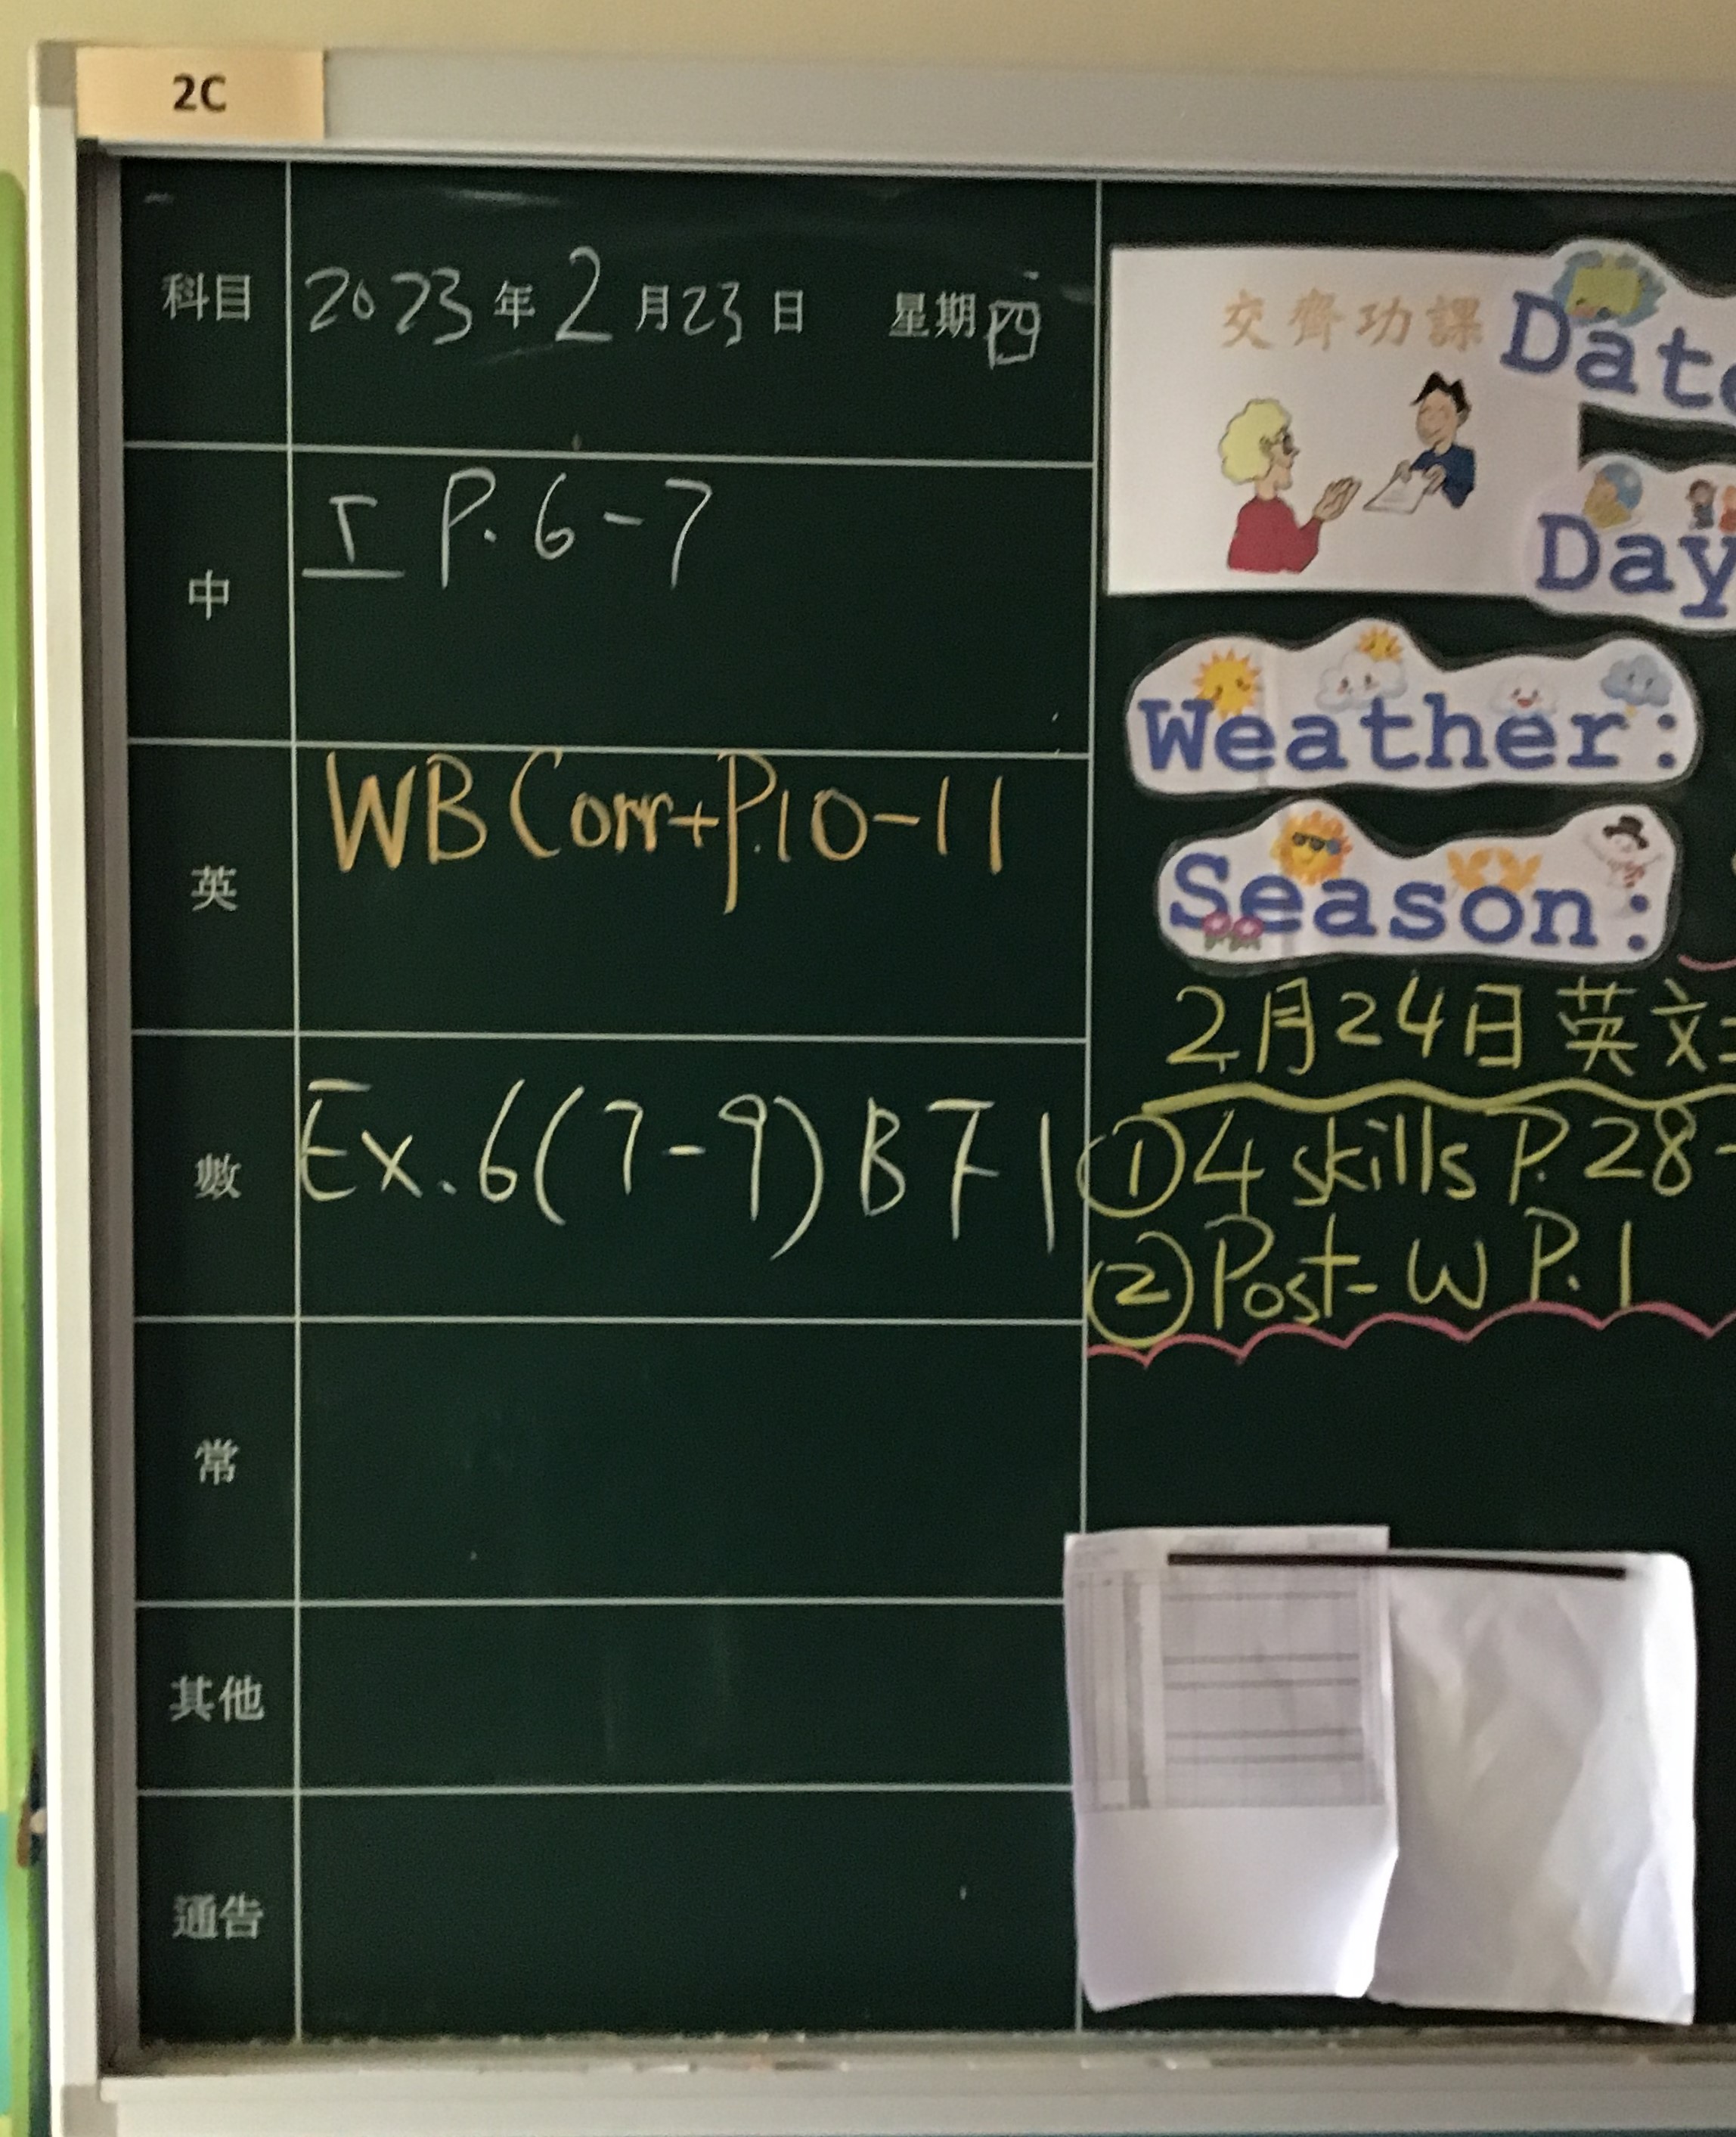 2C
科目 2023年2月23日 星期四
中 工 P.6-7
英 WB Corr+P.10-11
數 Ex.6(7-9) BF1
常
其他
通告
交齊功課
Date
Day
Weather:
Season:
2月24日英文
①4 skills P.28-
②Post-W P.1